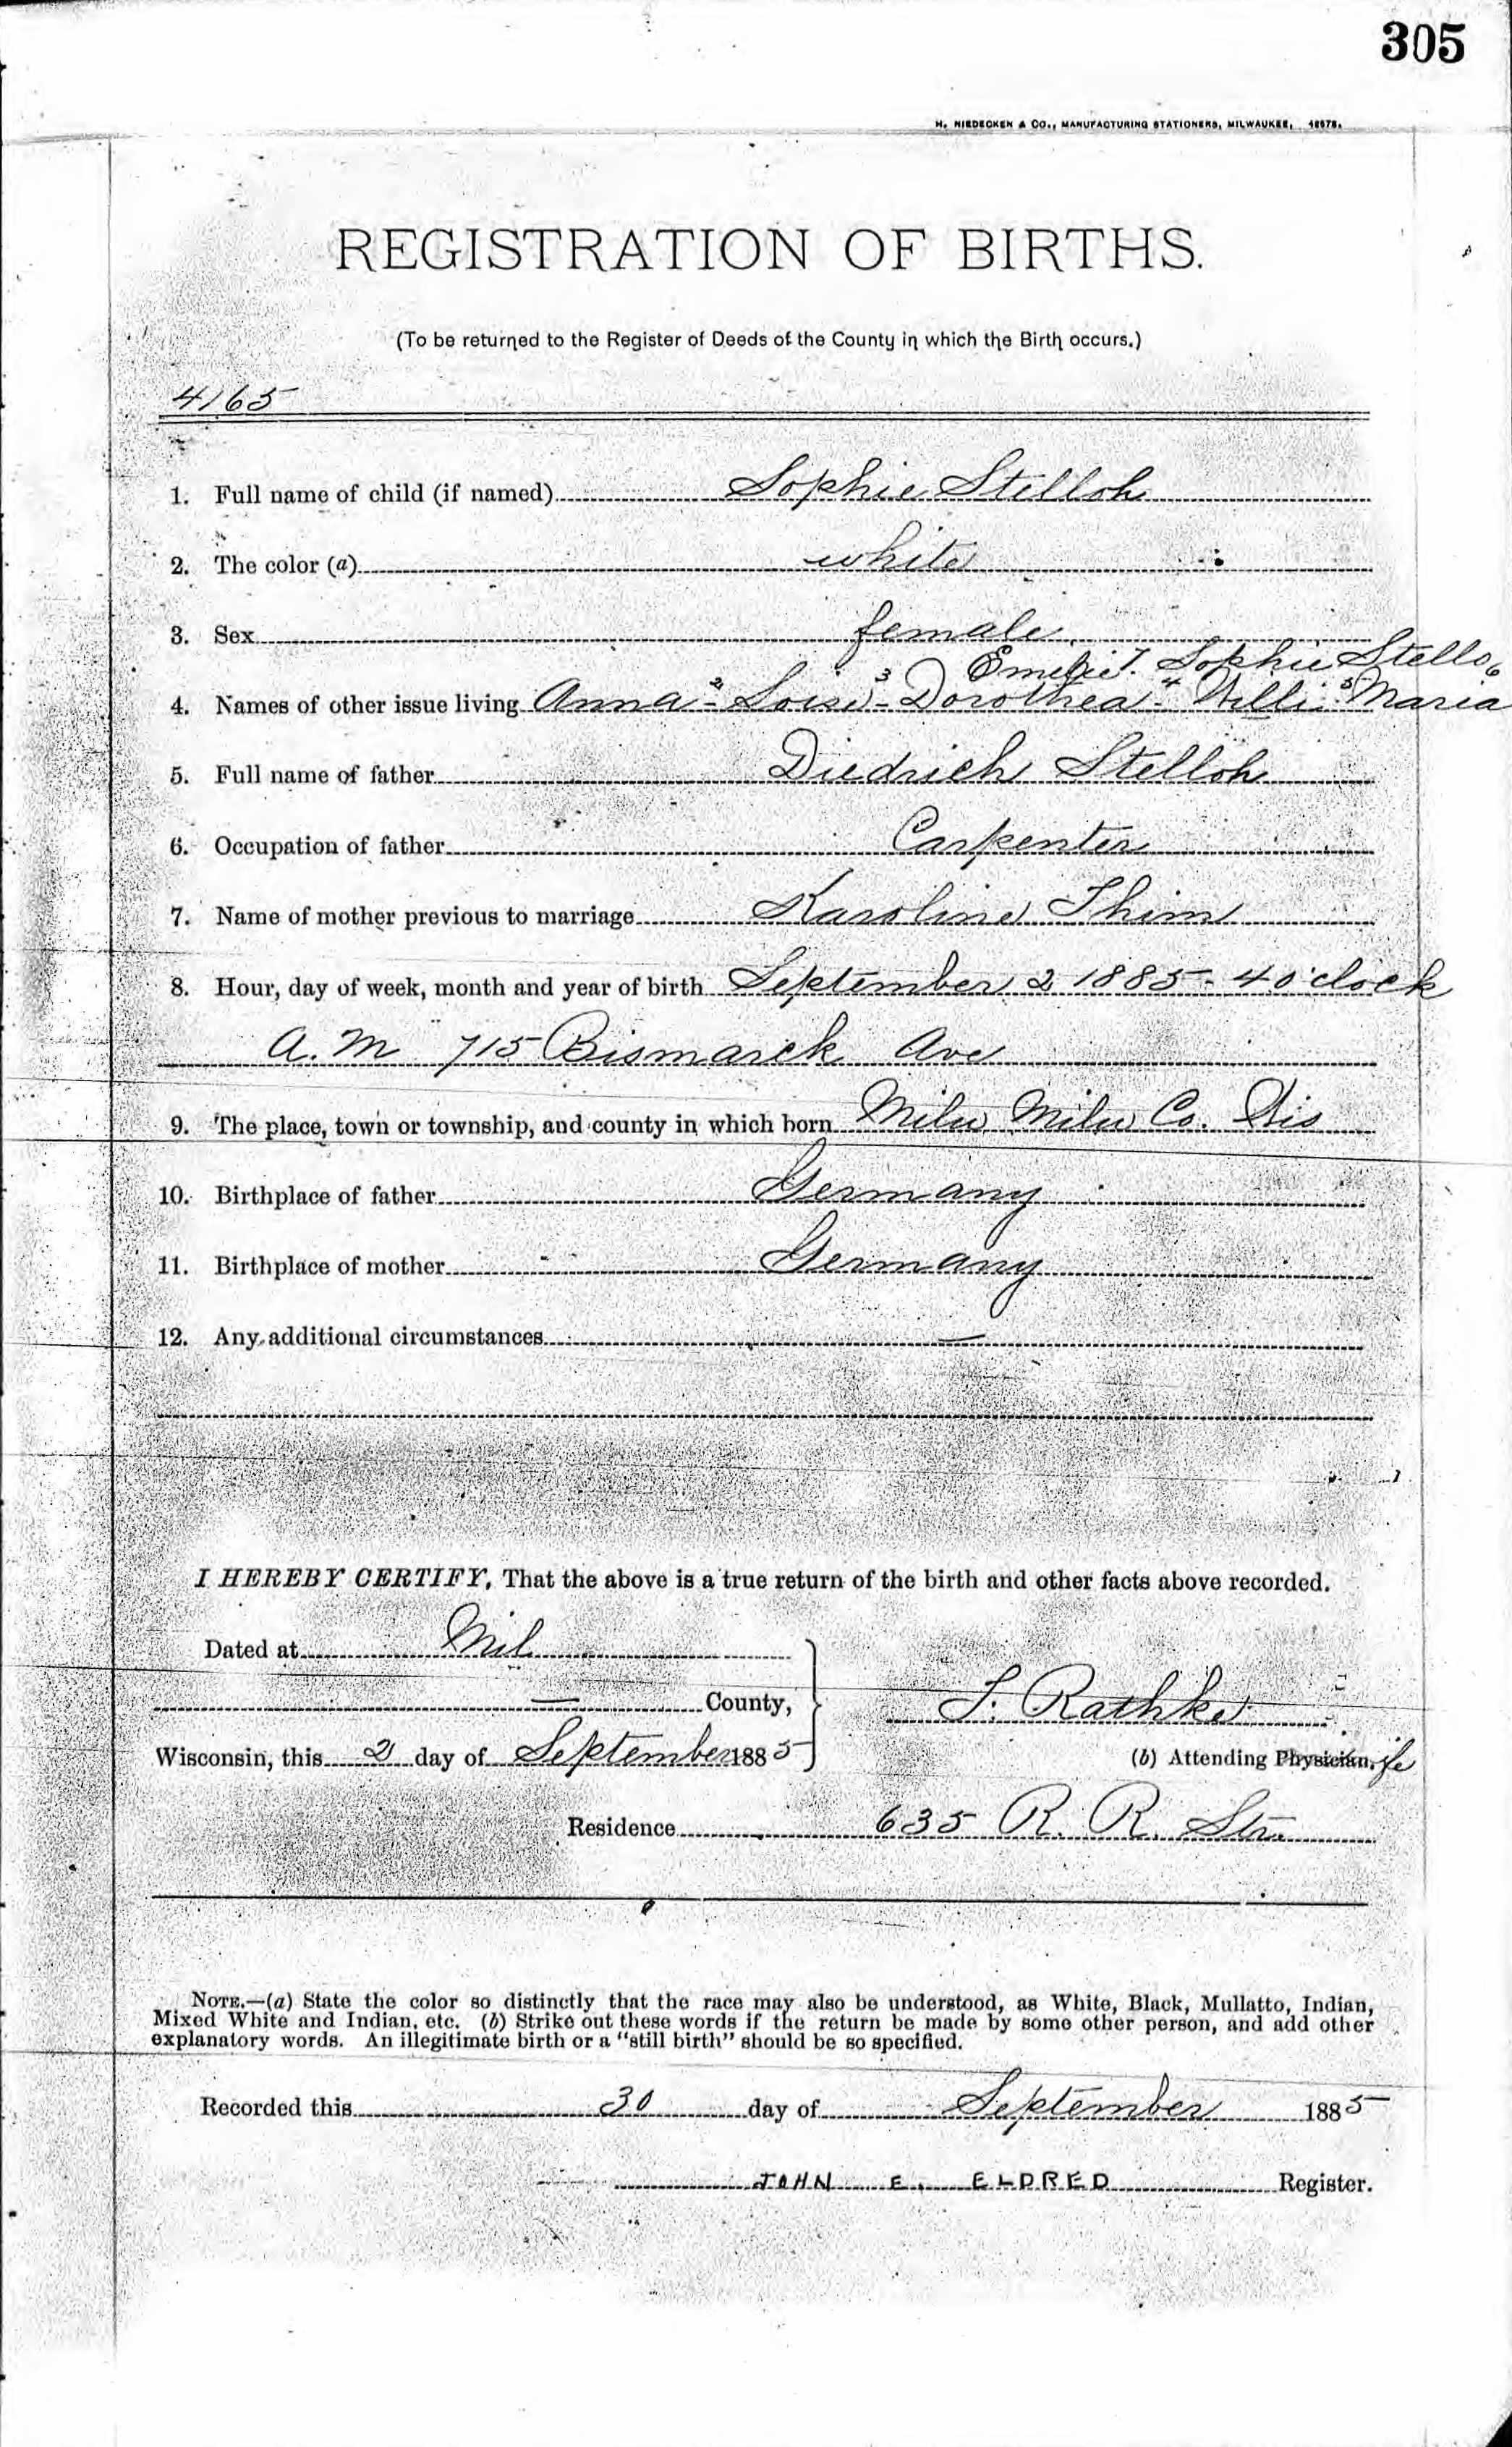 305
H. NIEDECKEN & CO., MANUFACTURING STATIONERS, MILWAUKEE,
REGISTRATION OF BIRTHS.
(To be returned to the Register of Deeds of the County in which the Birth occurs.)
4165
1. Full name of child (if named) Sophie Stelloh
2. The color (a) white
3. Sex female
Emelie 7. Sophie Stello 6
4. Names of other issue living Anna - 2 Loise - 3 Dorothea - 4 Willi 5 Maria
5. Full name of father Diedrich Stelloh
6. Occupation of father Carpenter
7. Name of mother previous to marriage Karoline Thim
8. Hour, day of week, month and year of birth September 2 1885 - 4 o'clock
a. m 715 Bismarck Ave
9. The place, town or township, and county in which born Milw Milw Co. Wis
10. Birthplace of father Germany
11. Birthplace of mother Germany
12. Any additional circumstances —
I HEREBY CERTIFY, That the above is a true return of the birth and other facts above recorded.
Dated at Mil
— County,
Wisconsin, this 2 day of September 1885
Rathke
(b) Attending Physician,
Residence 635 R. R. Str.
NOTE.—(a) State the color so distinctly that the race may also be understood, as White, Black, Mullatto, Indian,
Mixed White and Indian, etc. (b) Strike out these words if the return be made by some other person, and add other
explanatory words. An illegitimate birth or a "still birth" should be so specified.
Recorded this 30 day of September 1885
JOHN E. ELDRED Register.